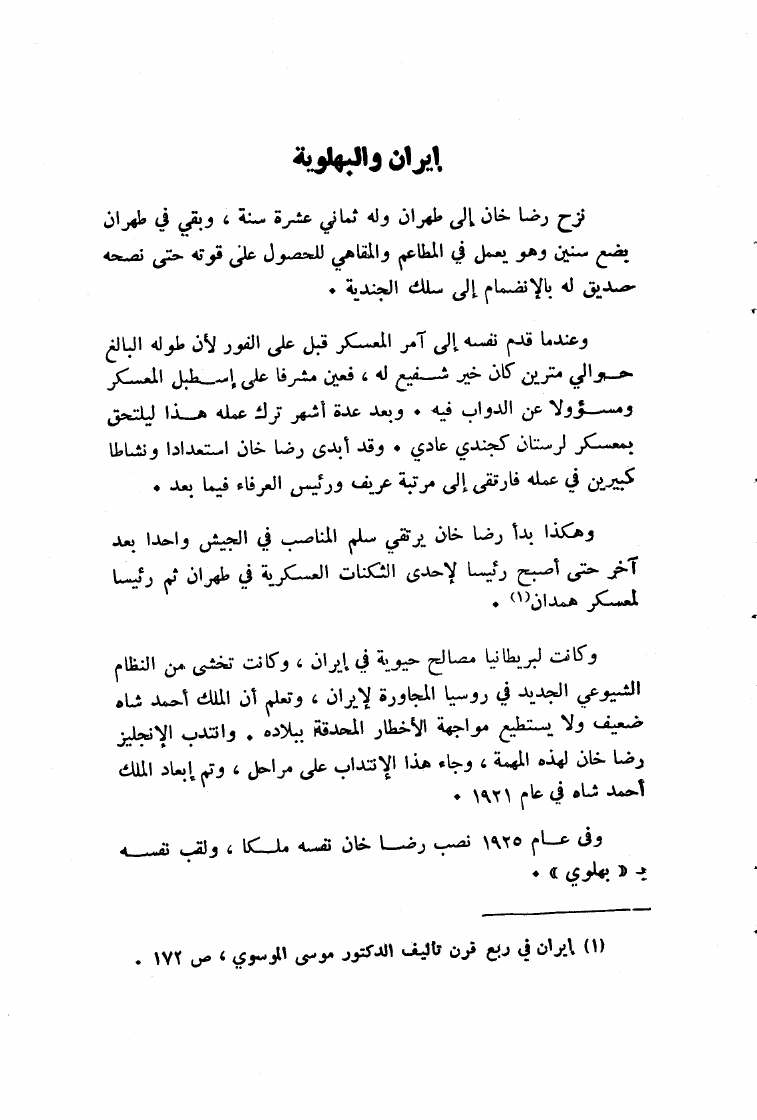 إيران والبهلوية
نزح رضا خان إلى طهران وله ثماني عشرة سنة ، وبقي في طهران
بضع سنين وهو يعمل في المطاعم والمقاهي للحصول على قوته حتى نصحه
صديق له بالإنضمام إلى سلك الجندية .
وعندما قدم نفسه إلى آمر المعسكر قبل على الفور لأن طوله البالغ
حوالي مترين كان خير شفيع له ، فعين مشرفا على إسطبل المعسكر
ومسؤولا عن الدواب فيه . وبعد عدة أشهر ترك عمله هذا ليلتحق
بمعسكر لرستان كجندي عادي . وقد أبدى رضا خان استعدادا ونشاطا
كبيرين في عمله فارتقى إلى مرتبة عريف ورئيس العرفاء فيما بعد .
وهكذا بدأ رضا خان يرتقي سلم المناصب في الجيش واحدا بعد
آخر حتى أصبح رئيسا لإحدى الثكنات العسكرية في طهران ثم رئيسا
لمعسكر همدان(١) .
وكانت لبريطانيا مصالح حيوية في إيران ، وكانت تخشى من النظام
الشيوعي الجديد في روسيا المجاورة لإيران ، وتعلم أن الملك أحمد شاه
ضعيف ولا يستطيع مواجهة الأخطار المحدقة ببلاده . وانتدب الإنجليز
رضا خان لهذه المهمة ، وجاء هذا الإنتداب على مراحل ، وتم إبعاد الملك
أحمد شاه في عام ١٩٢١ .
وفى عام ١٩٢٥ نصب رضا خان نفسه ملكا ، ولقب نفسه
بـ « بهلوي » .
(١) إيران في ربع قرن تأليف الدكتور موسى الموسوي ، ص ١٧٢ .